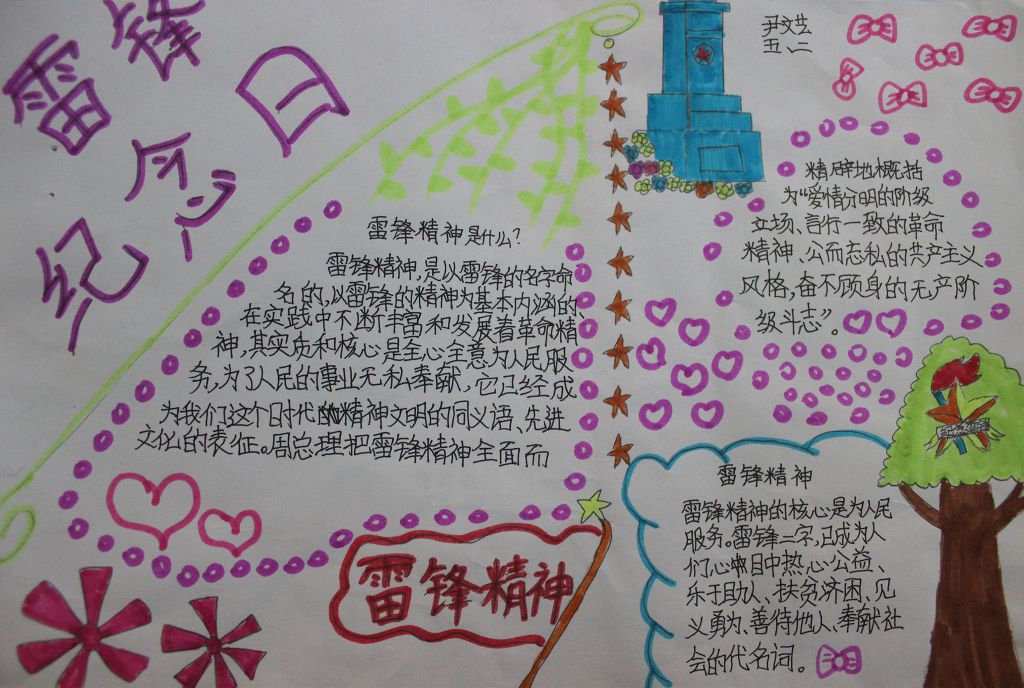 雷锋
纪念日
尹文芸
五、二
雷锋精神是什么?
雷锋精神,是以雷锋的名字命
名的,以雷锋的精神为基本内涵的、
在实践中不断丰富和发展着革命精
神,其实质和核心是全心全意为人民服
务,为了人民的事业无私奉献,它已经成
为我们这个时代的精神文明的同义语、先进
文化的表征。周总理把雷锋精神全面而
精辟地概括
为“爱憎分明的阶级
立场、言行一致的革命
精神、公而忘私的共产主义
风格,奋不顾身的无产阶
级斗志”。
雷锋精神
雷锋精神
雷锋精神的核心是为人民
服务。雷锋二字,已成为人
们心中热心公益、
乐于助人、扶贫济困、见
义勇为、善待他人、奉献社
会的代名词。